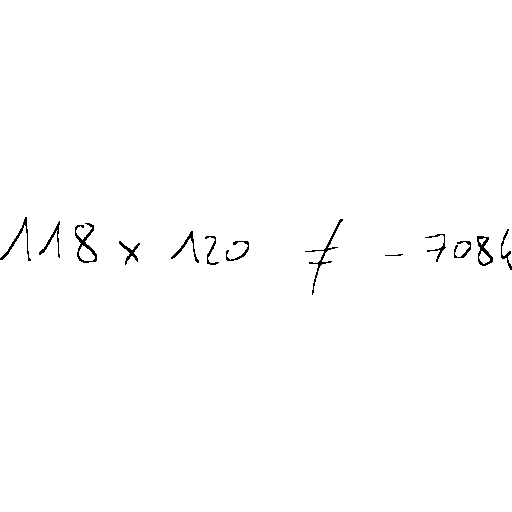 118 × 120 ≠ - 7084